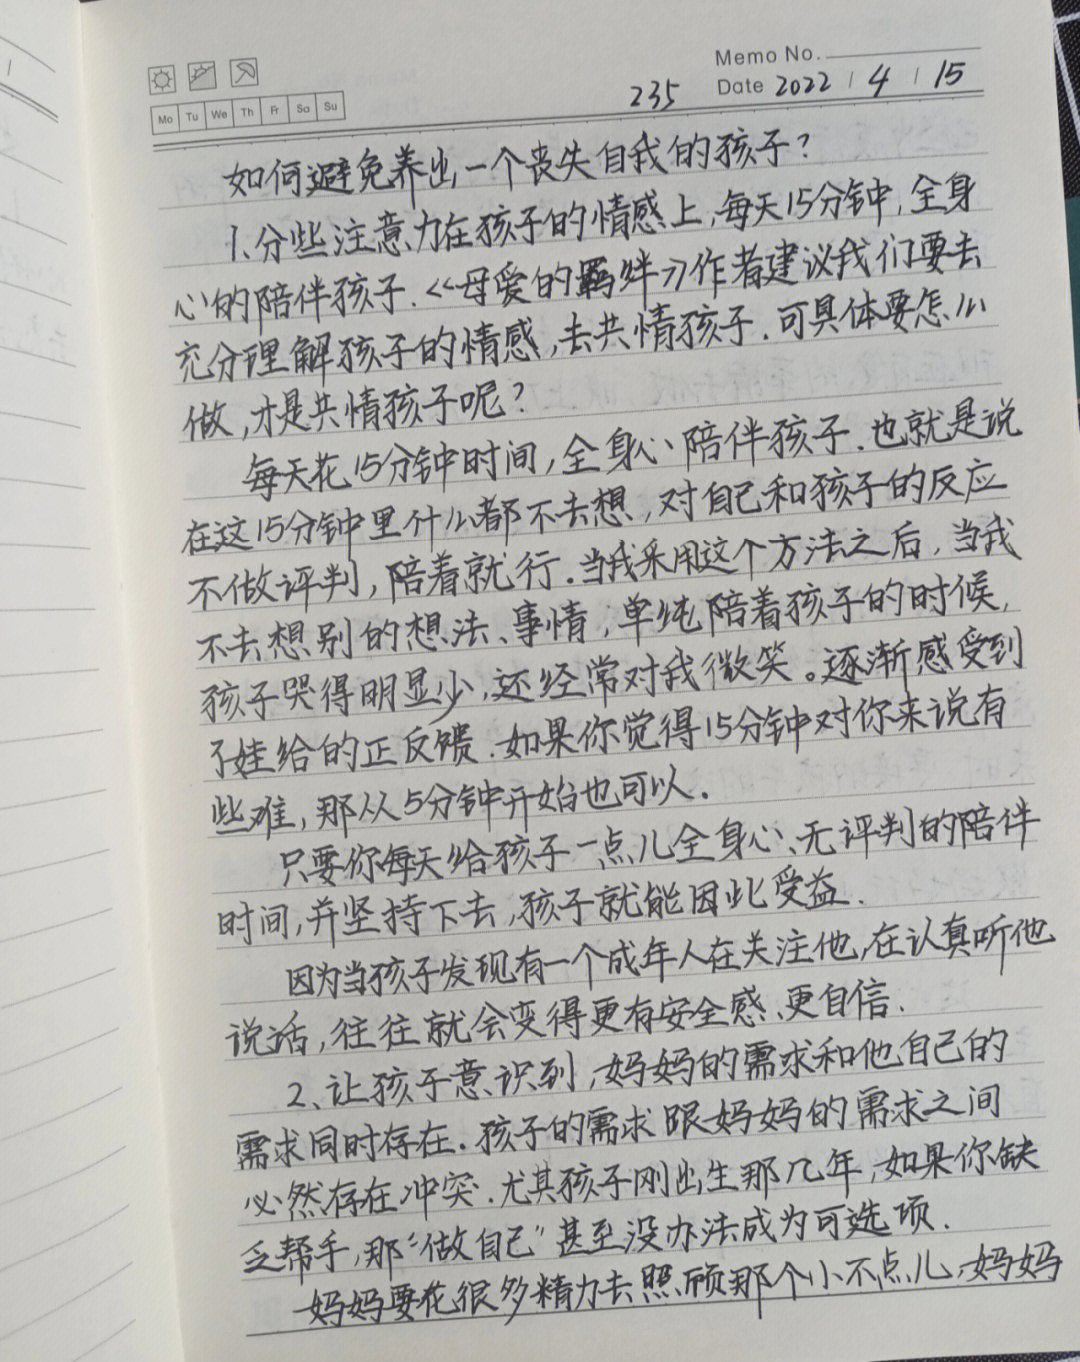 Memo No.
235 Date 2022 / 4 / 15
Mo Tu We Th Fr Sa Su
如何避免养出一个丧失自我的孩子?
1、分些注意力在孩子的情感上,每天15分钟,全身
心的陪伴孩子.《母爱的羁绊》作者建议我们要去
充分理解孩子的情感,去共情孩子.可具体要怎么
做,才是共情孩子呢?
每天花15分钟时间,全身心陪伴孩子.也就是说
在这15分钟里什么都不去想,对自己和孩子的反应
不做评判,陪着就行.当我采用这个方法之后,当我
不去想别的想法、事情,单纯陪着孩子的时候,
孩子哭得明显少,还经常对我微笑。逐渐感受到
了娃给的正反馈.如果你觉得15分钟对你来说有
些难,那从5分钟开始也可以.
只要你每天给孩子一点儿全身心、无评判的陪伴
时间,并坚持下去,孩子就能因此受益.
因为当孩子发现有一个成年人在关注他,在认真听他
说话,往往就会变得更有安全感、更自信.
2、让孩子意识到,妈妈的需求和他自己的
需求同时存在.孩子的需求跟妈妈的需求之间
必然存在冲突.尤其孩子刚出生那几年,如果你缺
乏帮手,那“做自己”甚至没办法成为可选项.
妈妈要花很多精力去照顾那个小不点儿,妈妈